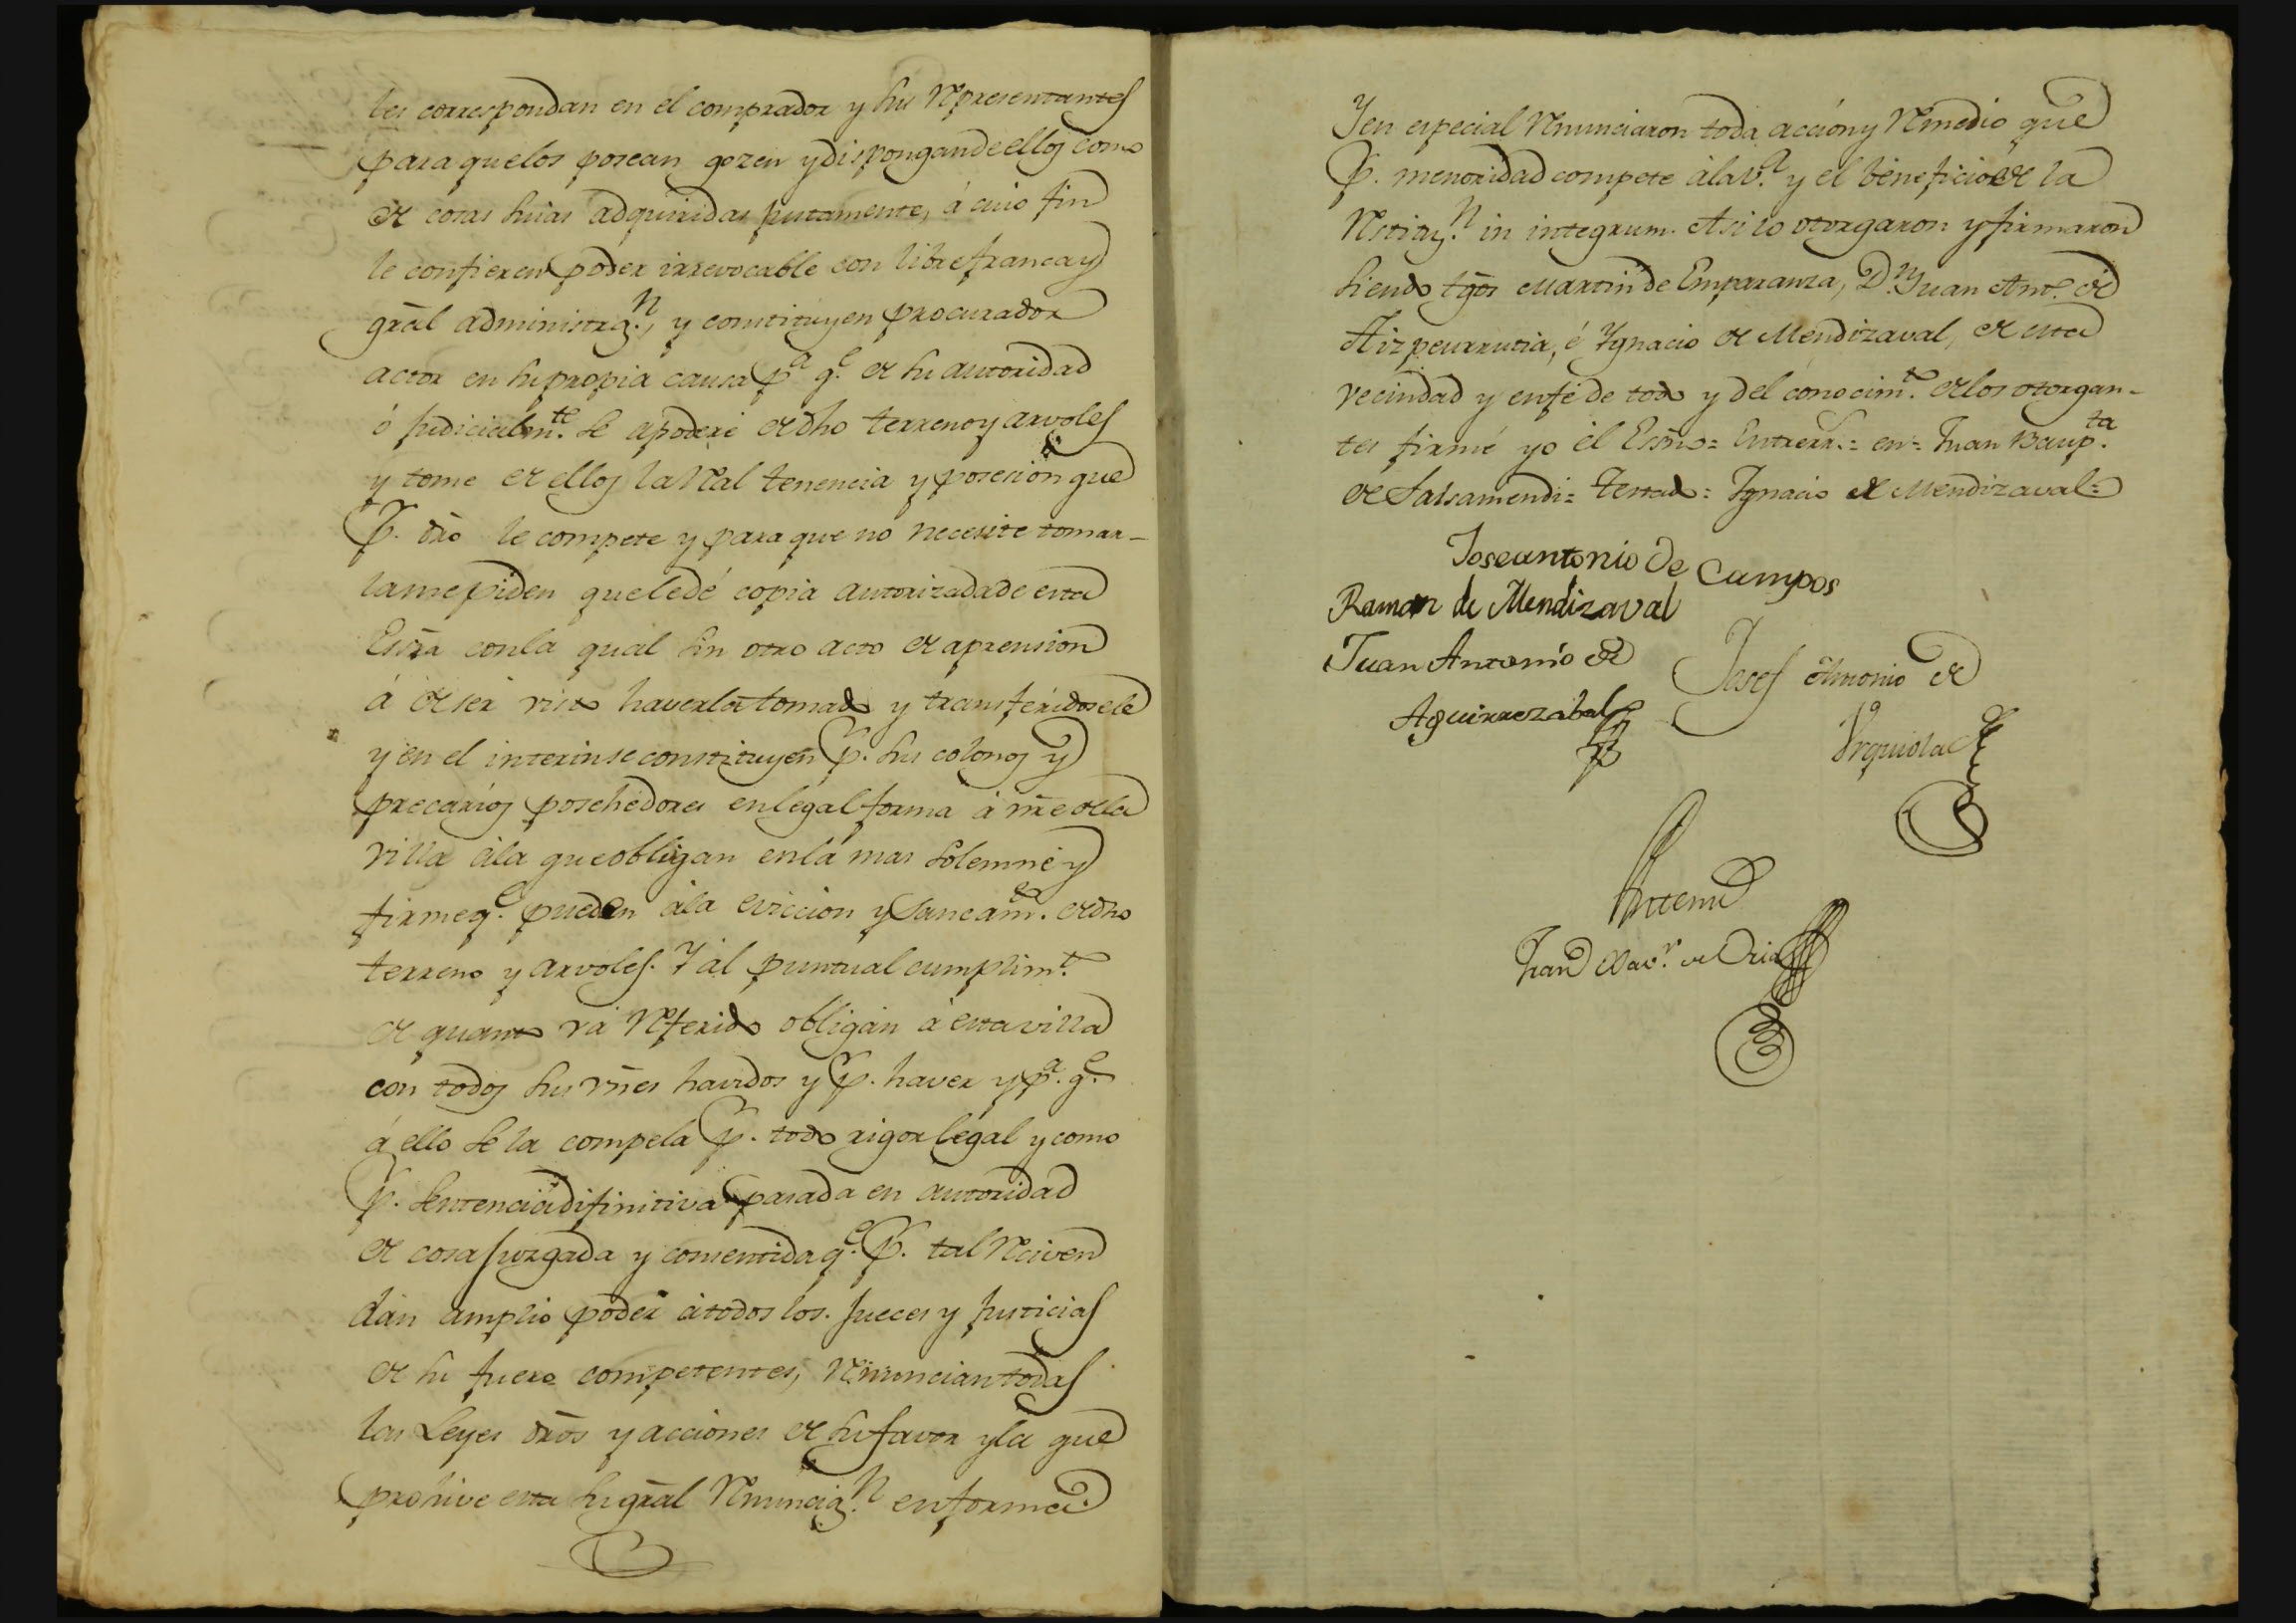 les correspondan en el comprador y sus Representantes
para que los posean gozen y dispongan de ellos como
de cosas suias adquiridas justamente, á cuio fin
le confieren poder irrevocable con libre franca y
grãl administraz.ⁿ, y constituyen procurador
actor en su propia causa p.ª q.ᵉ de su autoridad
ó judicialm.ᵗᵉ se apodere de dho terreno y arvoles
y tome de ellos la Real tenencia y posesion que
p. dr̃o le compete y para que no necesite tomar-
la me piden que le dé copia autorizada de esta
Esc̃ra con la qual sin otro acto de aprension
á de ser visto haverla tomado y transferidosele
y en el interin se constituyen p. sus colonos y
precarios posehedores en legal forma á nr̃e de la
villa á la que obligan en la mas solemne y
firme q.ᵉ pueden á la eviccion y saneam.ᵗᵒ de dho
terreno y arvoles. Y al puntual cumplim.ᵗᵒ
de quanto va Referido obligan á esta villa
con todos sus vñes havidos y p. haver y p.ª q.ᵉ
á ello se la compela p. todo rigor legal y como
p. sentencia difinitiva pasada en autoridad
de cosa juzgada y consentida q.ᵉ p. tal Reciven
dán amplio poder á todos los Jueces y Justicias
de su fuero competentes, Renuncian todas
las Leyes dr̃os y acciones de su favor y la que
prohive esta su grãl Renunciaz.ⁿ en forma.
Y en especial Renunciaron toda accion y Remedio que
p. menoridad compete á la v.ª y el beneficio de la
Restituz.ⁿ in integrum. Asi lo otorgaron y firmaron
siendo tgõs Martin de Emparanza, D.ⁿ Juan Ant.º de
Aizpeurrutia, é Ygnacio de Mendizaval, de esta
vecindad y en fé de todo y del conocim.ᵗᵒ de los otorgan-
tes firmé yo el Esc̃no = Entrerr.ˢ = en = Juan Baup.ᵗᵃ
de Salsamendi = Testado = Ygnacio de Mendizaval =
Jose antonio de Campos
Ramon de Mendizaval
Juan Antonio de
Aguirrezabal
Josef Antonio de
Vrquiola
Antemi
Juan Xav.ʳ de Oria